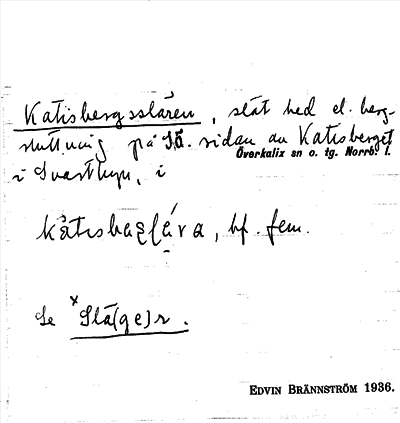 Katisbergsslåren, slät hed el. berg-
sluttning på SÖ. sidan av Katisberget
Överkalix sn o. tg. Norrb. l.
i Svartbyn, i
bf. fem.
Se ˣSlå(ge)r.
EDVIN BRÄNNSTRÖM 1936.